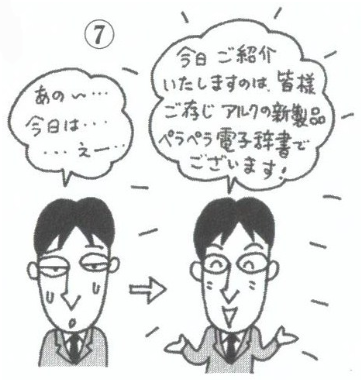 ⑦
あのぃ…
今日は‥‥
‥‥えー…
今日ご紹介
いたしますのは、皆様
ご存じアルクの新製品
ペラペラ電子辞書で
ございます!